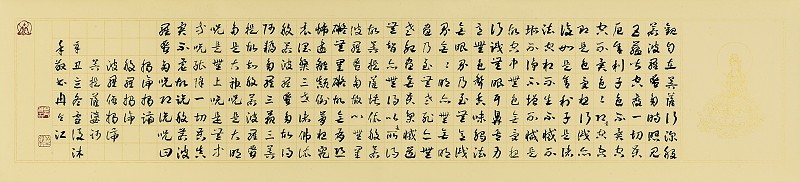 觀自在菩薩行深般
若波羅蜜多時照見
五蘊皆空度一切苦
厄舍利子色不異空
空不異色色即是空
空即是色受想行識
亦復如是舍利子是諸
法空相不生不滅不
垢不淨不增不減是
故空中無色無受想
行識無眼耳鼻舌身
意無色聲香味觸法
無眼界乃至無意識
界無無明亦無無明
盡乃至無老死亦無
老死盡無苦集滅道
無智亦無得以無所得
故菩提薩埵依般若
波羅蜜多故心無罣
礙無罣礙故無有恐
怖遠離顛倒夢想究
竟涅槃三世諸佛依
般若波羅蜜多故得
阿耨多羅三藐三菩
提故知般若波羅蜜
多是大神咒是大明
咒是無上咒是無等
等咒能除一切苦真
實不虛故說般若波
羅蜜多咒即說咒曰
揭諦揭諦
般羅揭諦
波羅僧揭諦
菩提薩婆訶
辛丑立冬雪後沐
手敬書冉令江